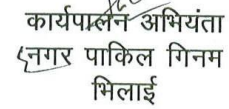 कार्यपालन अभियंता
नगर पाकिल गिनम
भिलाई